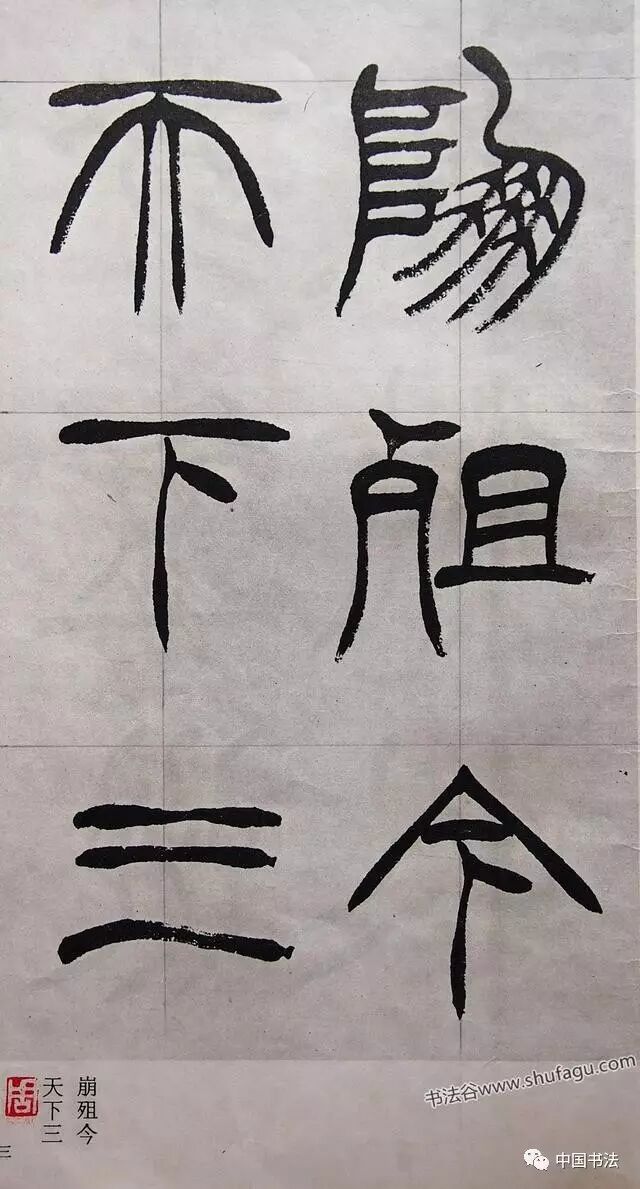 崩殂今
天下三
崩殂今
天下三
三
书法谷www.shufagu.com
中国书法